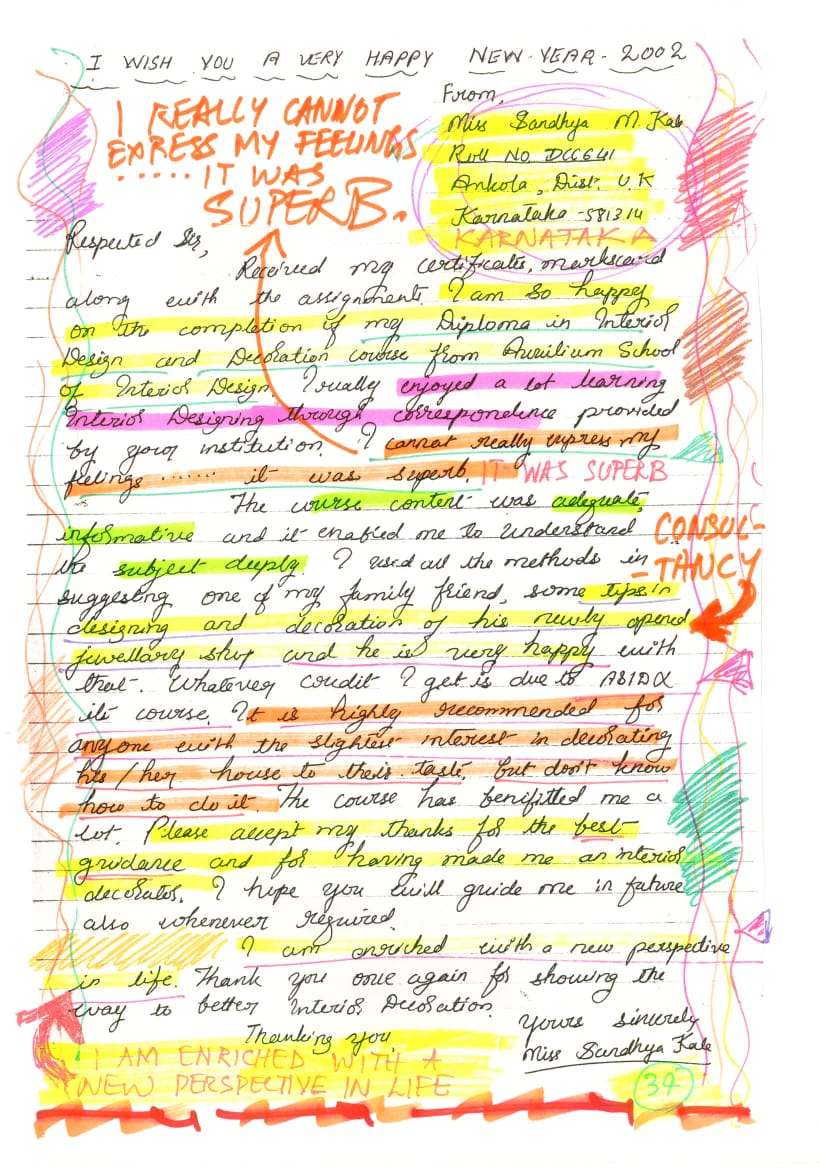 I WISH YOU A VERY HAPPY NEW-YEAR-2002
I REALLY CANNOT
EXPRESS MY FEELINGS
...... IT WAS
SUPERB.
From,
Miss Sandhya M. Kale
Roll No. DCG641
Ankola, Dist. U.K
Karnataka -581314
KARNATAKA
Respected Sir,
Received my certificates, markscard
along with the assignments. I am so happy
on the completion of my Diploma in Interior
Design and Decoration course from Auxilium School
of Interior Design. I really enjoyed a lot learning
Interior Designing through correspondence provided
by your institution. I cannot really express my
feelings ...... it was superb. IT WAS SUPERB
The course content was adequate,
informative and it enabled me to understand
the subject deeply. I used all the methods in
suggesting one of my family friend, some tips in
designing and decoration of his newly opened
jewellary shop and he is very happy with
that. Whatever credit I get is due to
its course. It is highly recommended for
anyone with the slightest interest in decorating
his/her house to their taste, but don't know
how to do it. The course has benifitted me a
lot. Please accept my thanks for the best
guidance and for having made me an interior
decorator. I hope you will guide me in future
also whenever required.
CONSUL-
-TANCY
I am enriched with a new perspective
in life. Thank you once again for showing the
way to better Interior Decoration.
Thanking you,
Yours sincerely
Miss Sandhya Kale
I AM ENRICHED WITH A
NEW PERSPECTIVE IN LIFE
34